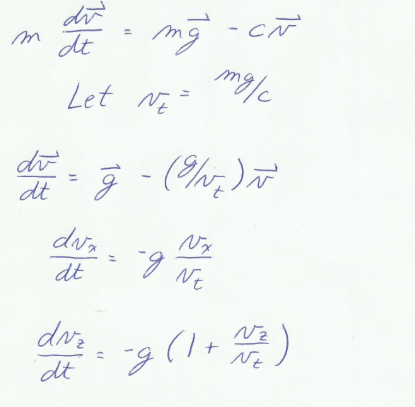 m dv⃗/dt = mg⃗ - cv⃗
Let v_t = mg/c
dv⃗/dt = g⃗ - (g/v_t)v⃗
dv_x/dt = -g v_x/v_t
dv_z/dt = -g (1 + v_z/v_t)